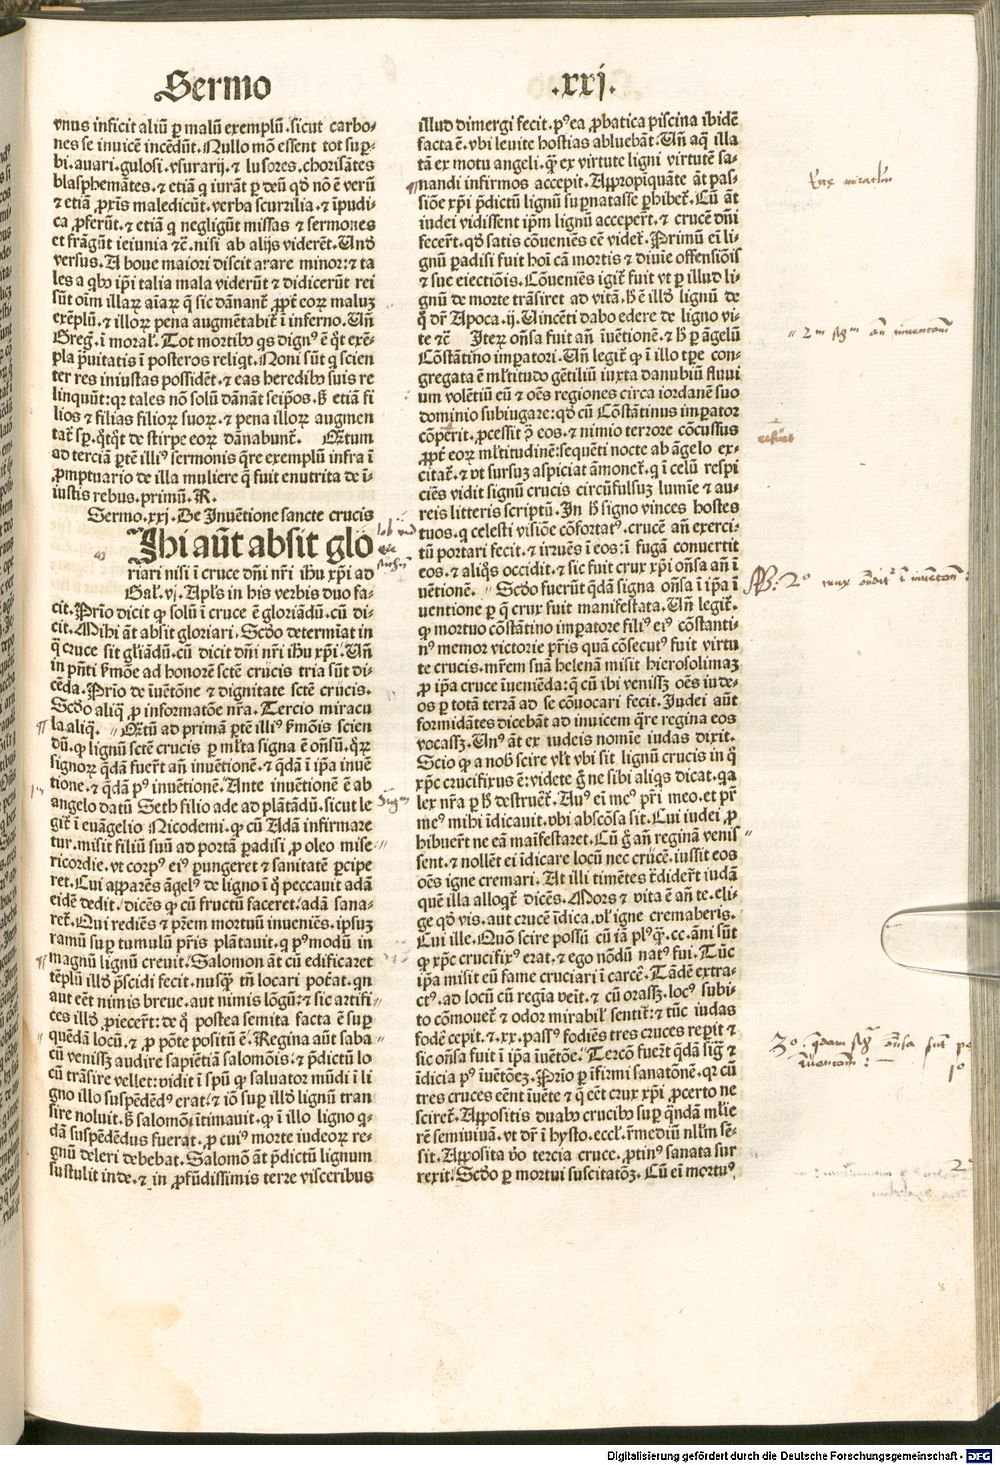 Sermo .xxj.
vnus inficit aliū ꝑ malū exemplū. sicut carbo-
nes se inuicē incēdūt. Nullo mō essent tot suꝑ-
bi. auari. gulosi. vsurarij. ⁊ lusores. chorisātes
blasphemātes. ⁊ etiā q iurāt ꝑ deū qđ nō ē verū
⁊ etiā ꝓxīs maledicūt. verba scurzilia. ⁊ īpudi-
ca ꝓferūt. ⁊ etiā q negligūt missas ⁊ sermones
et frāgūt ieiunia ⁊c̄. nisi ab alijs viderēt. Unđ
versus. A boue maiori discit arare minor: ⁊ ta
les a qbꝰ ip̄i talia mala viderūt ⁊ didicerūt rei
sūt oīm illaꝝ aīaꝝ q̄ sic dānanť ꝓpť eoꝝ maluꝫ
exēplū. ⁊ illoꝝ pena augmētabiť ī inferno. Uñ
Greg̃. ī moraľ. Tot mortibꝰ qs dignꝰ ē q̄t exē-
pla p̄uitatis ī posteros reliqt. Noni sūt q scien
ter res iniustas possidēt. ⁊ eas heredibꝰ suis re
linquūt: qꝛ tales nō solū dānāt seip̄os. ẞ etiā fi
lios ⁊ filias filioꝝ suoꝝ. ⁊ pena illoꝝ augmen
tať sꝑ. q̄tq̄t de stirpe eoꝝ dānabunť. Q̄tum
ad terciā ꝑtē illiꝰ sermonis q̄re exemplū infra ī
ꝓmptuario de illa muliere q̄ fuit enutrita de ī-
iustis rebus. primū. R.
Sermo. xxj. De Inuētione sancte crucis
Mihi aūt absit glo
riari nisi ī cruce dñi nr̄i ihū xp̄i ad
Gaľ. vj. Apľs in his verbis duo fa-
cit. Prīo dicit ꝙ solū ī cruce ē gloriādū. cū di-
cit. Mihi āt absit gloriari. Scđo determīat in
q̄ cruce sit gľiādū. cū dicit dñi nr̄i ihū xp̄i. Uñ
in pn̄ti ẞmōe ad honorē sctē crucis tria sūt di-
cēda. Prīo de īuētōne ⁊ dignitate sctē crucis.
Scđo aliq̄ ꝓ informatōe nr̄a. Tercio miracu
la aliq̄. Q̄tū ad primā ꝑtē illiꝰ ẞmōis scien
dū. ꝙ lignū sctē crucis ꝑ mľta signa ē on̄sū. q̄ꝝ
signoꝝ q̄dā fuerť añ inuētionē. ⁊ q̄dā ī ip̄a inuē
tione. ⁊ q̄dā pꝰ inuētionē. Ante inuētionē ē ab
angelo datū Seth filio ade ad plātādū. sicut le
giť ī euāgelio Nicodemi. ꝙ cū Adā infirmare
tur. misit filiū suū ad portā ꝑadisi ꝓ oleo mise-
ricordie. vt corpꝰ eiꝰ ꝑungeret ⁊ sanitatē ꝑcipe
ret. Cui apparēs āgelꝰ de ligno ī q̄ peccauit adā
eidē dedit. dicēs ꝙ cū fructū faceret. adā sana-
reť. Qui rediēs ⁊ pr̄em mortuū inueniēs. ipsuꝫ
ramū suꝑ tumulū pr̄is plātauit. q pꝰmodū in
magnū lignū creuit. Salomon āt cū edificaret
tēplū illđ p̄scidi fecit. nusq̄ tñ locari poťat. qn
aut eēt nimis breue. aut nimis lōgū: ⁊ sic artifi-
ces illđ ꝓiecerť: de q̄ postea semita facta ē suꝑ
quēdā locū. ⁊ ꝓ pōte positū ē. Regina aūt saba
cū venissꝫ audire sapiētiā salomōis. ⁊ p̄dictū lo
cū trāsire vellet: vidit ī spū ꝙ saluator mūdi ī li
gno illo suspēdēdꝰ erat. ⁊ iō suꝑ illđ lignū tran
sire noluit. ẞ salomōi ītimauit. ꝙ ī illo ligno q-
dā suspēdēdus fuerat. ꝓ cuiꝰ morte iudeoꝝ re-
gnū deleri debebat. Salomō āt p̄dictū lignum
sustulit inde. ⁊ in ꝓfūdissimis terre visceribus
illud dimergi fecit. pꝰea ꝓbatica piscina ibidē
facta ē. vbi leuite hostias abluebāt. Uñ aq̄ illa
tā ex motu angeli. q̄ ex virtute ligni virtutē sa-
nandi infirmos accepit. Appropīquāte āt pas-
siōe xp̄i p̄dictū lignū suꝑnatasse ꝑhibeť. Cū āt
iudei vidissent ip̄m lignū acceperť. ⁊ crucē dñi
fecerť. qđ satis cōueniēs eē videť. Primū eī li-
gnū ꝑadisi fuit hoī cā mortis ⁊ diuīe offensiōis
⁊ sue eiectiōis. Cōueniēs igiť fuit vt ꝑ illud li-
gnū de morte trāsiret ad vitā. ẞ ē illđ lignū de
q̄ dr̄ Apoca. ij. Uincēti dabo edere de ligno vi-
te ⁊c̄ Iteꝝ on̄sa fuit añ īuētionē. ⁊ ẞ ꝑ āgelū
Cōstātino imꝑatori. Uñ legiť ꝙ ī illo tꝑe con-
gregata ē mľtitudo gētiliū iuxta danubiū fluui
um volētiū eū ⁊ oēs regiones circa iordanē suo
dominio subiugare: qđ cū Cōstātinus imꝑator
cōperit. ꝓcessit ꝯ̄ eos. ⁊ nimio terrore cōcussus
ꝓpť eoꝝ mľtitudinē: sequēti nocte ab āgelo ex-
citať. ⁊ vt sursuꝫ aspiciat āmoneť. q ī celū respi
ciēs vidit signū crucis circūfulsuꝫ lumīe ⁊ au-
reis litteris scriptū. In ẞ signo vinces hostes
tuos. q celesti visiōe cōfortatꝰ. crucē añ exerci-
tū portari fecit. ⁊ irruēs ī eos: ī fugā conuertit
eos. ⁊ aliq̄s occidit. ⁊ sic fuit crux xp̄i on̄sa añ ī
uētionē. Scđo fuerūt q̄dā signa on̄sa ī ip̄a ī
uentione ꝑ q̄ crux fuit manifestata. Uñ legiť.
ꝙ mortuo cōstātino imꝑatore filiꝰ eiꝰ cōstanti-
nꝰ memor victorie pr̄is quā cōsecutꝰ fuit virtu
te crucis. mr̄em suā helenā misit hierosolimaꝫ
ꝓ ip̄a cruce īueniēda: q̄ cū ibi venissꝫ oēs iude-
os ꝑ totā terrā ad se cōuocari fecit. Iudei aūt
formidātes dicebāt ad inuicem q̄re regina eos
vocassꝫ. Unꝰ āt ex iudeis nomīe iudas dixit.
Scio ꝙ a nobꝰ scire vľt vbi sit lignū crucis in q̄
xp̄c crucifixus ē: videte g̊ ne sibi aliq̄s dicat. qa
lex nr̄a ꝑ ẞ destrueť. Auꝰ eī meꝰ pr̄i meo. et pr̄
meꝰ mihi īdicauit. vbi abscōsa sit. Cui iudei ꝓ
hibuerť ne eā maīfestaret. Cū g̊ añ reginā venis
sent. ⁊ nollēt ei īdicare locū nec crucē. iussit eos
oēs igne cremari. At illi timētes ťdiderť iudā
quē illa alloqť dicēs. Mors ⁊ vita ē añ te. eli-
ge qđ vis. aut crucē īdica. vľ igne cremaberis.
Cui ille. Quō scire possū cū iā plꝰq̄. cc. āni sūt
ꝙ xp̄c crucifixꝰ erat. ⁊ ego nōdū natꝰ fui. Tūc
ip̄a misit eū fame cruciari ī carcē. Tādē extra-
ctꝰ. ad locū cū regīa veīt. ⁊ cū orassꝫ. locꝰ subi-
to cōmoueť ⁊ odor mirabiľ sentiť: ⁊ tūc iudas
fodē cepit. ⁊. xx. passꝰ fodiēs tres cruces reꝑit ⁊
sic on̄sa fuit ī ip̄a īuētōe. Tercō fuerť q̄dā sig̃ ⁊
īdicia pꝰ īuētōeꝫ. Prīo ꝑ īfirmi sanatōnē. qꝛ cū
tres cruces eēnt īuēte ⁊ q̄ eēt crux xp̄i ꝓcerto ne
scireť. Appositis duabꝰ crucibꝰ suꝑ q̄ndā mľie
rē semiuiuā. vt dr̄ ī hysto. eccľ. r̄mediū nľľm sē-
sit. Apposita v̊o tercia cruce. ꝓtinꝰ sanata sur
rexit. Scđo ꝑ mortui suscitatōꝫ. Cū eī mortuꝰ
Digitalisierung gefördert durch die Deutsche Forschungsgemeinschaft - DFG